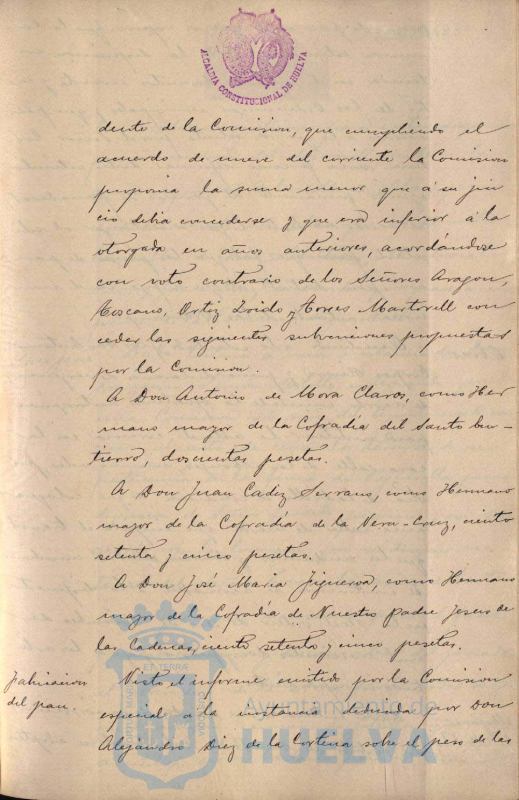 ALCALDIA CONSTITUCIONAL DE HUELVA
dente de la Comision, que cumpliendo el
acuerdo de nueve del corriente la Comision
proponia la suma menor que á su jui
cio debia concederse y que era inferior á la
otorgada en años anteriores, acordándose
con voto contrario de los Señores Aragon,
Toscano, Ortiz Zoido y Torres Martorell con
ceder las siguientes subvenciones propuestas
por la Comision.
A Don Antonio de Mora Claros, como Her
mano mayor de la Cofradía del Santo En-
tierro, doscientas pesetas.
A Don Juan Cadiz Serrano, como Hermano
mayor de la Cofradía de la Vera-Cruz, ciento
setenta y cinco pesetas.
A Don José Maria Figueroa, como Hermano
mayor de la Cofradía de Nuestro padre Jesus de
las Cadenas, ciento setenta y cinco pesetas.
Fabricacion
del pan.
Visto el informe emitido por la Comision
especial a la instancia deducida por Don
Alejandro Diez de la Cortina sobre el peso de las
Ayuntamiento de
HUELVA